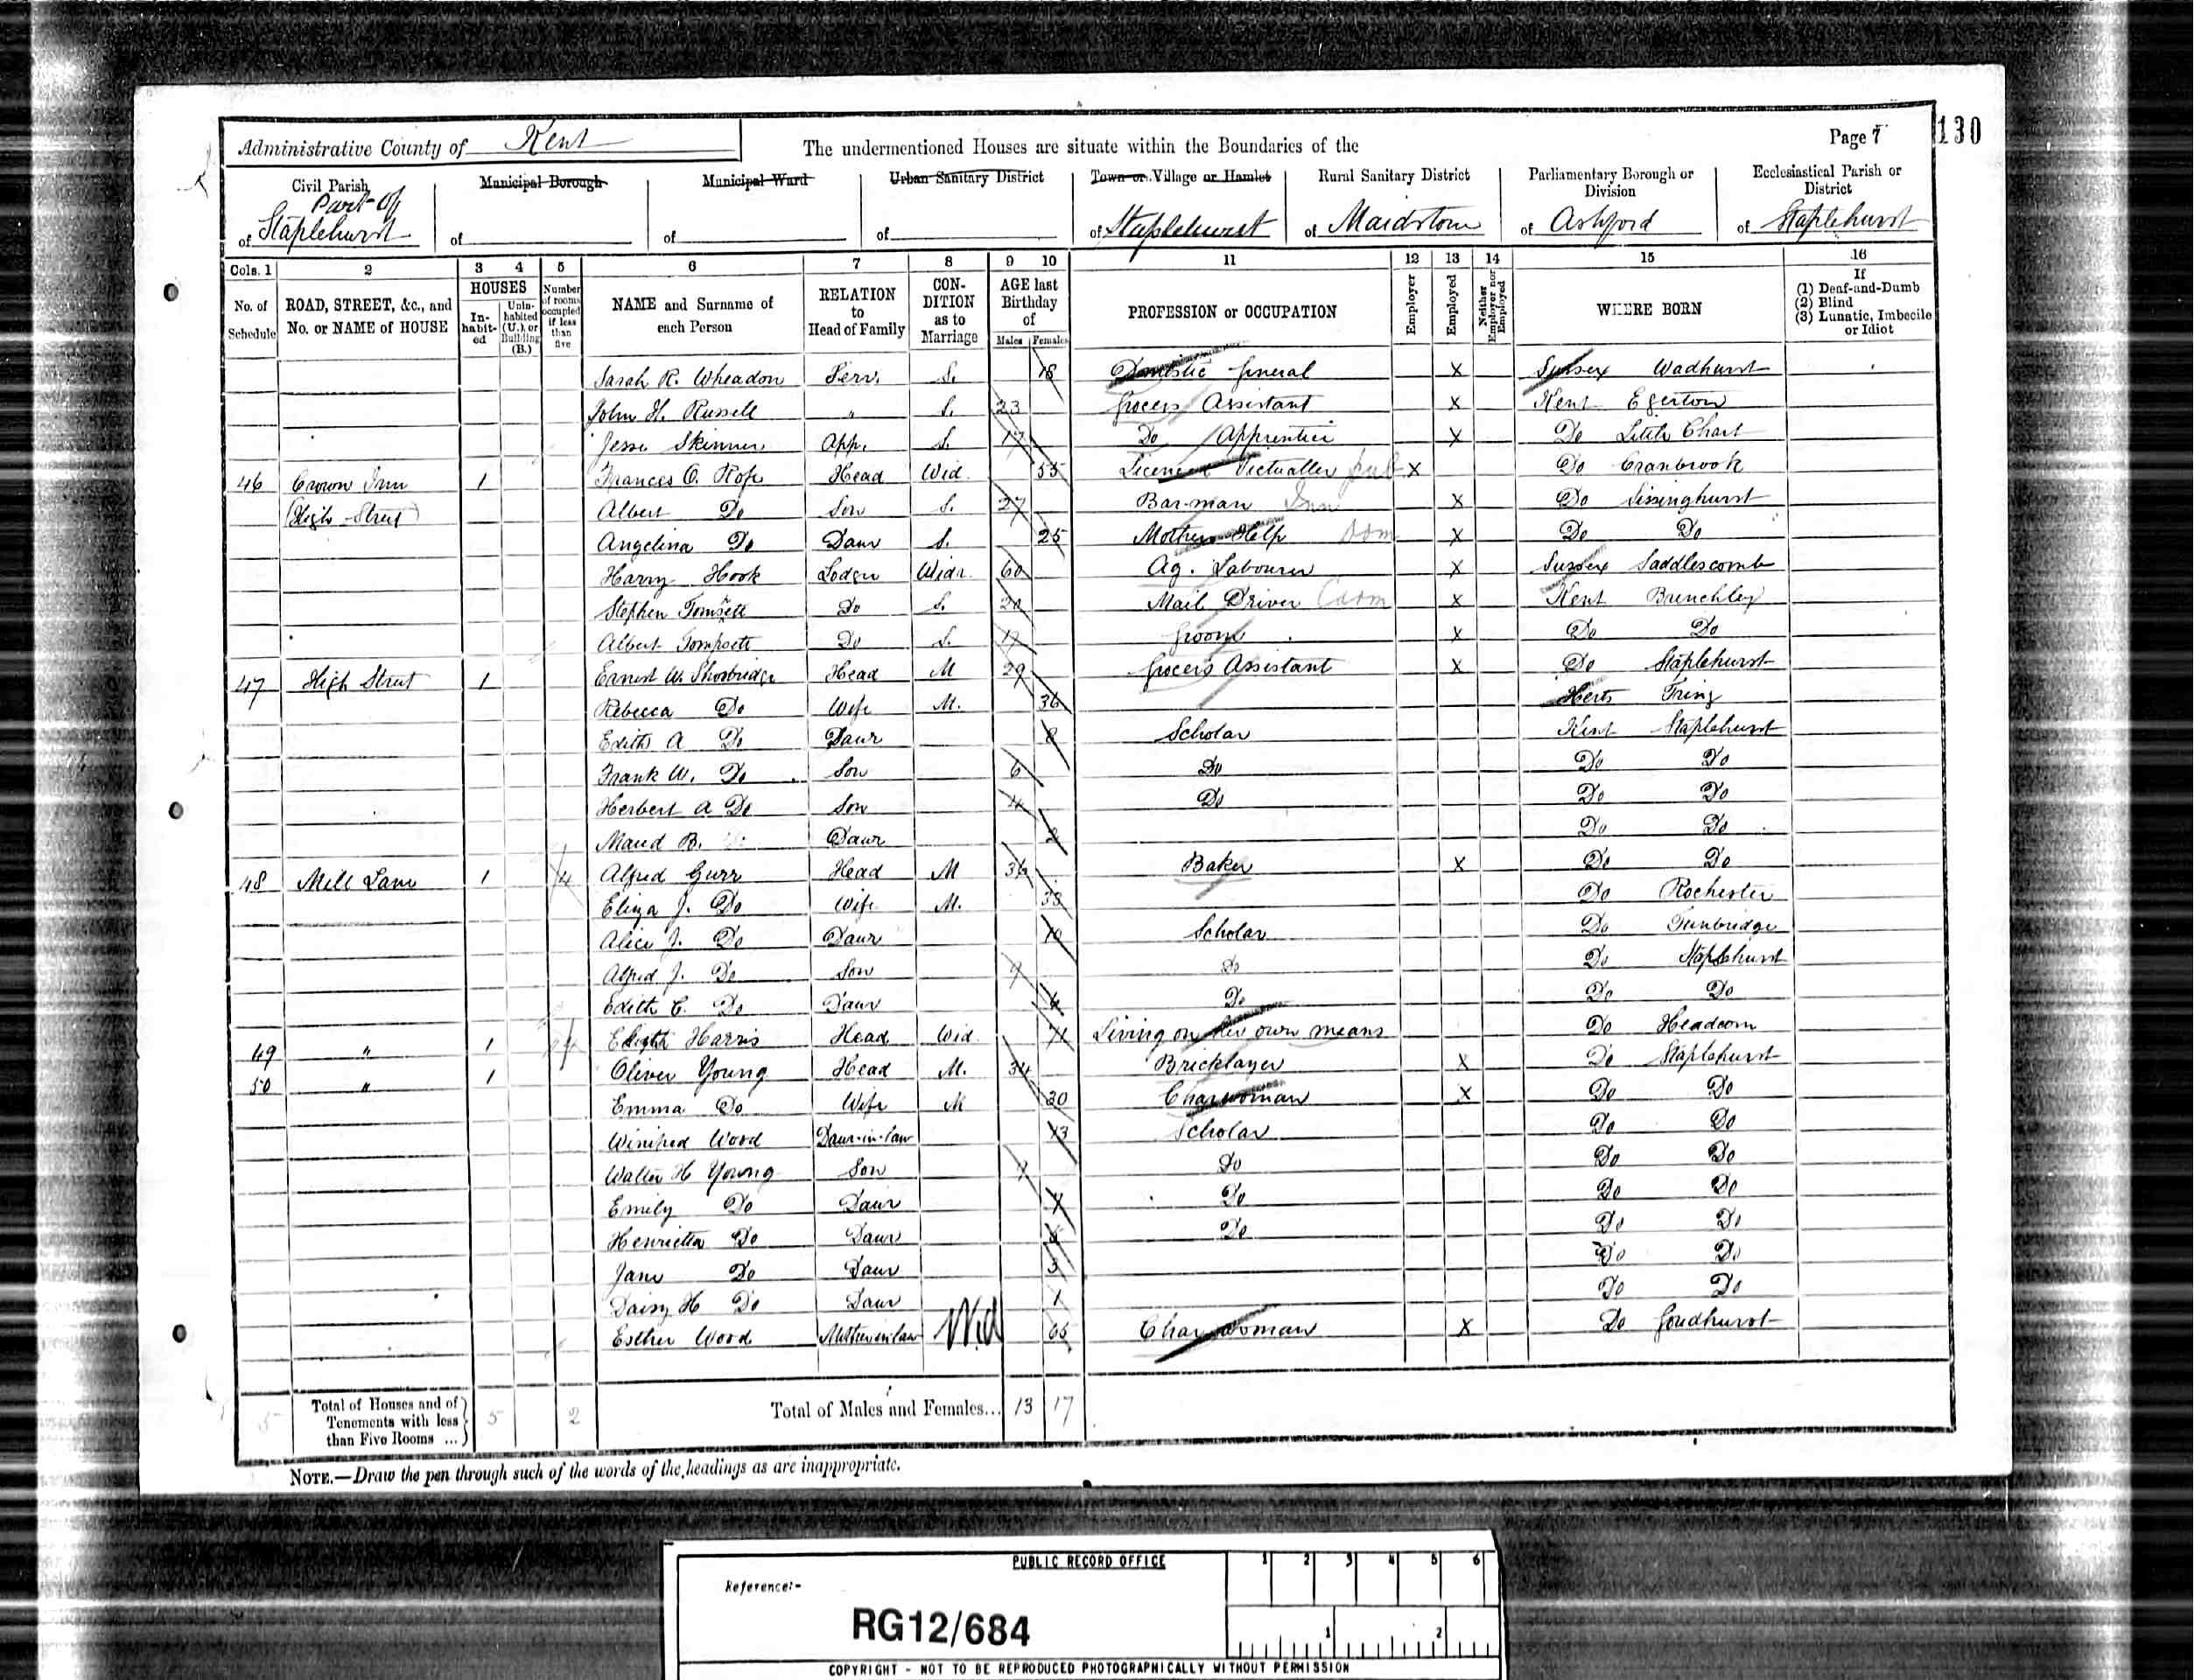 Administrative County of Kent
The undermentioned Houses are situate within the Boundaries of the
Page 7
130
Civil Parish
Part of
of Staplehurst
Municipal Borough
of
Municipal Ward
of
Urban Sanitary District
of
Town or Village or Hamlet
of Staplehurst
Rural Sanitary District
of Maidstone
Parliamentary Borough or Division
of Ashford
Ecclesiastical Parish or District
of Staplehurst
Cols. 1 2 3 4 5 6 7 8 9 10 11 12 13 14 15 16
No. of Schedule
ROAD, STREET, &c., and No. or NAME of HOUSE
HOUSES
In-habit-ed
Unin-habited (U.), or Building (B.)
Number of rooms occupied if less than five
NAME and Surname of each Person
RELATION to Head of Family
CON-DITION as to Marriage
AGE last Birthday of
Males Females
PROFESSION or OCCUPATION
Employer
Employed
Neither Employer nor Employed
WHERE BORN
If
(1) Deaf-and-Dumb
(2) Blind
(3) Lunatic, Imbecile or Idiot
Sarah R. Wheadon Serv. S. 18 Domestic General X Sussex Wadhurst
John H. Russell " S. 23 Grocers Assistant X Kent Egerton
Jesse Skinner App. S. 17 Do Apprentice X Do Little Chart
46 Crown Inn 1 Frances O. Hope Head Wid 55 Licensed Victualler X Do Cranbrook
(High Street) Albert Do Son S. 27 Bar-man Inn X Do Sissinghurst
Angelina Do Daur S. 25 Mothers Help Dom X Do Do
Harry Hook Lodger Widr. 60 Ag. Labourer X Sussex Saddlescombe
Stephen Tomsett Do S. 20 Mail Driver X Kent Brenchley
Albert Tompsett Do S. 17 Groom X Do Do
47 High Street 1 Ernest W. Shoebridge Head M 29 Grocers Assistant X Do Staplehurst
Rebecca Do Wife M. 36 Herts Tring
Edith A Do Daur 8 Scholar Kent Staplehurst
Frank W. Do Son 6 Do Do Do
Herbert A Do Son 4 Do Do Do
Maud B. Daur 2 Do Do
48 Mill Lane 1 4 Alfred Gurr Head M 36 Baker X Do Do
Eliza J. Do Wife M. 33 Do Rochester
Alice J. Do Daur 10 Scholar Do Tunbridge
Alfred J. Do Son 9 Do Do Staplehurst
Edith C. Do Daur 6 Do Do Do
49 " 1 4 Harris Head Wid 71 Living on her own means Do Headcorn
50 " 1 Oliver Young Head M. 34 Bricklayer X Do Staplehurst
Emma Do Wife M 30 Charwoman X Do Do
Winifred Wood Daur-in-law 13 Scholar Do Do
Walter H Young Son 9 Do Do Do
Emily Do Daur 7 Do Do Do
Henrietta Do Daur Do Do Do
Jane Do Daur 3 Do Do
Daisy H Do Daur 1 Do Do
Esther Wood Mother in law Wid 65 Charwoman X Do Goudhurst
Total of Houses and of Tenements with less than Five Rooms ... 5 5 2
Total of Males and Females... 13 17
NOTE.—Draw the pen through such of the words of the headings as are inappropriate.
PUBLIC RECORD OFFICE
1 2 3 4 5 6
Reference:-
RG12/684
1 2
COPYRIGHT - NOT TO BE REPRODUCED PHOTOGRAPHICALLY WITHOUT PERMISSION